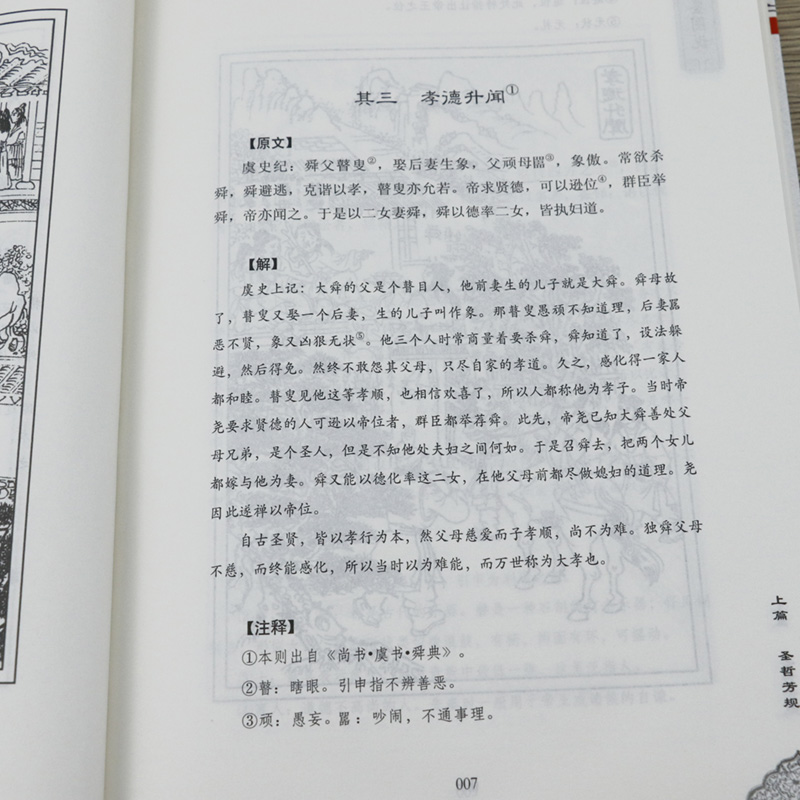 其三 孝德升闻①
【原文】
虞史纪：舜父瞽叟②，娶后妻生象，父顽母嚚③，象傲。常欲杀
舜，舜避逃，克谐以孝，瞽叟亦允若。帝求贤德，可以逊位④，群臣举
舜，帝亦闻之。于是以二女妻舜，舜以德率二女，皆执妇道。
【解】
虞史上记：大舜的父是个瞽目人，他前妻生的儿子就是大舜。舜母故
了，瞽叟又娶一个后妻，生的儿子叫作象。那瞽叟愚顽不知道理，后妻嚚
恶不贤，象又凶狠无状⑤。他三个人时常商量着要杀舜，舜知道了，设法躲
避，然后得免。然终不敢怨其父母，只尽自家的孝道。久之，感化得一家人
都和睦。瞽叟见他这等孝顺，也相信欢喜了，所以人都称他为孝子。当时帝
尧要求贤德的人可逊以帝位者，群臣都举荐舜。此先，帝尧已知大舜善处父
母兄弟，是个圣人，但是不知他处夫妇之间何如。于是召舜去，把两个女儿
都嫁与他为妻。舜又能以德化率这二女，在他父母前都尽做媳妇的道理。尧
因此遂禅以帝位。
自古圣贤，皆以孝行为本，然父母慈爱而子孝顺，尚不为难。独舜父母
不慈，而终能感化，所以当时以为难能，而万世称为大孝也。
【注释】
①本则出自《尚书•虞书•舜典》。
②瞽：瞎眼。引申指不辨善恶。
③顽：愚妄。嚚：吵闹，不通事理。
上篇 圣哲芳规
007